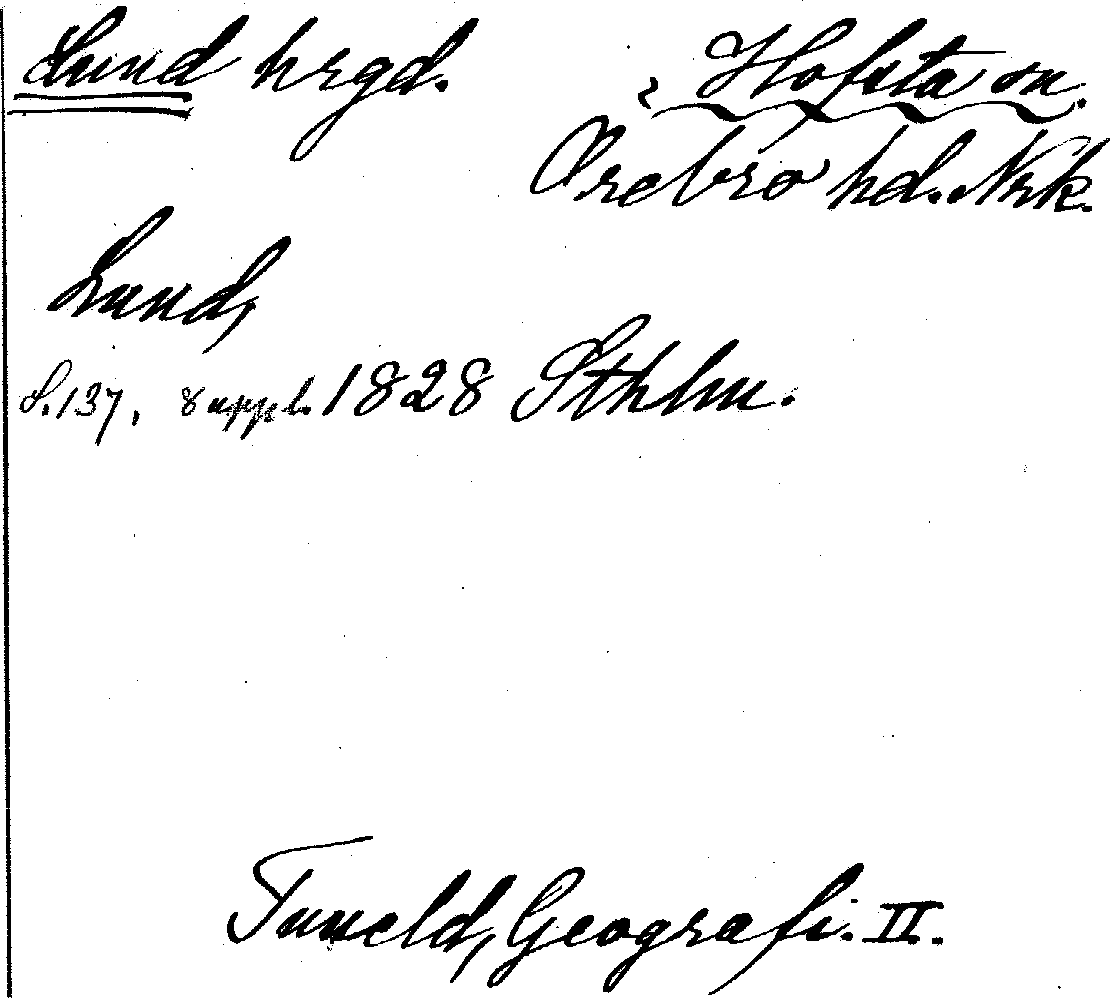 Lund hrgd. Hofsta sn.
Örebro hd. Nrk.
Lund,
S. 137, suppl. 1828 Sthlm.
Tuneld, Geografi. II.